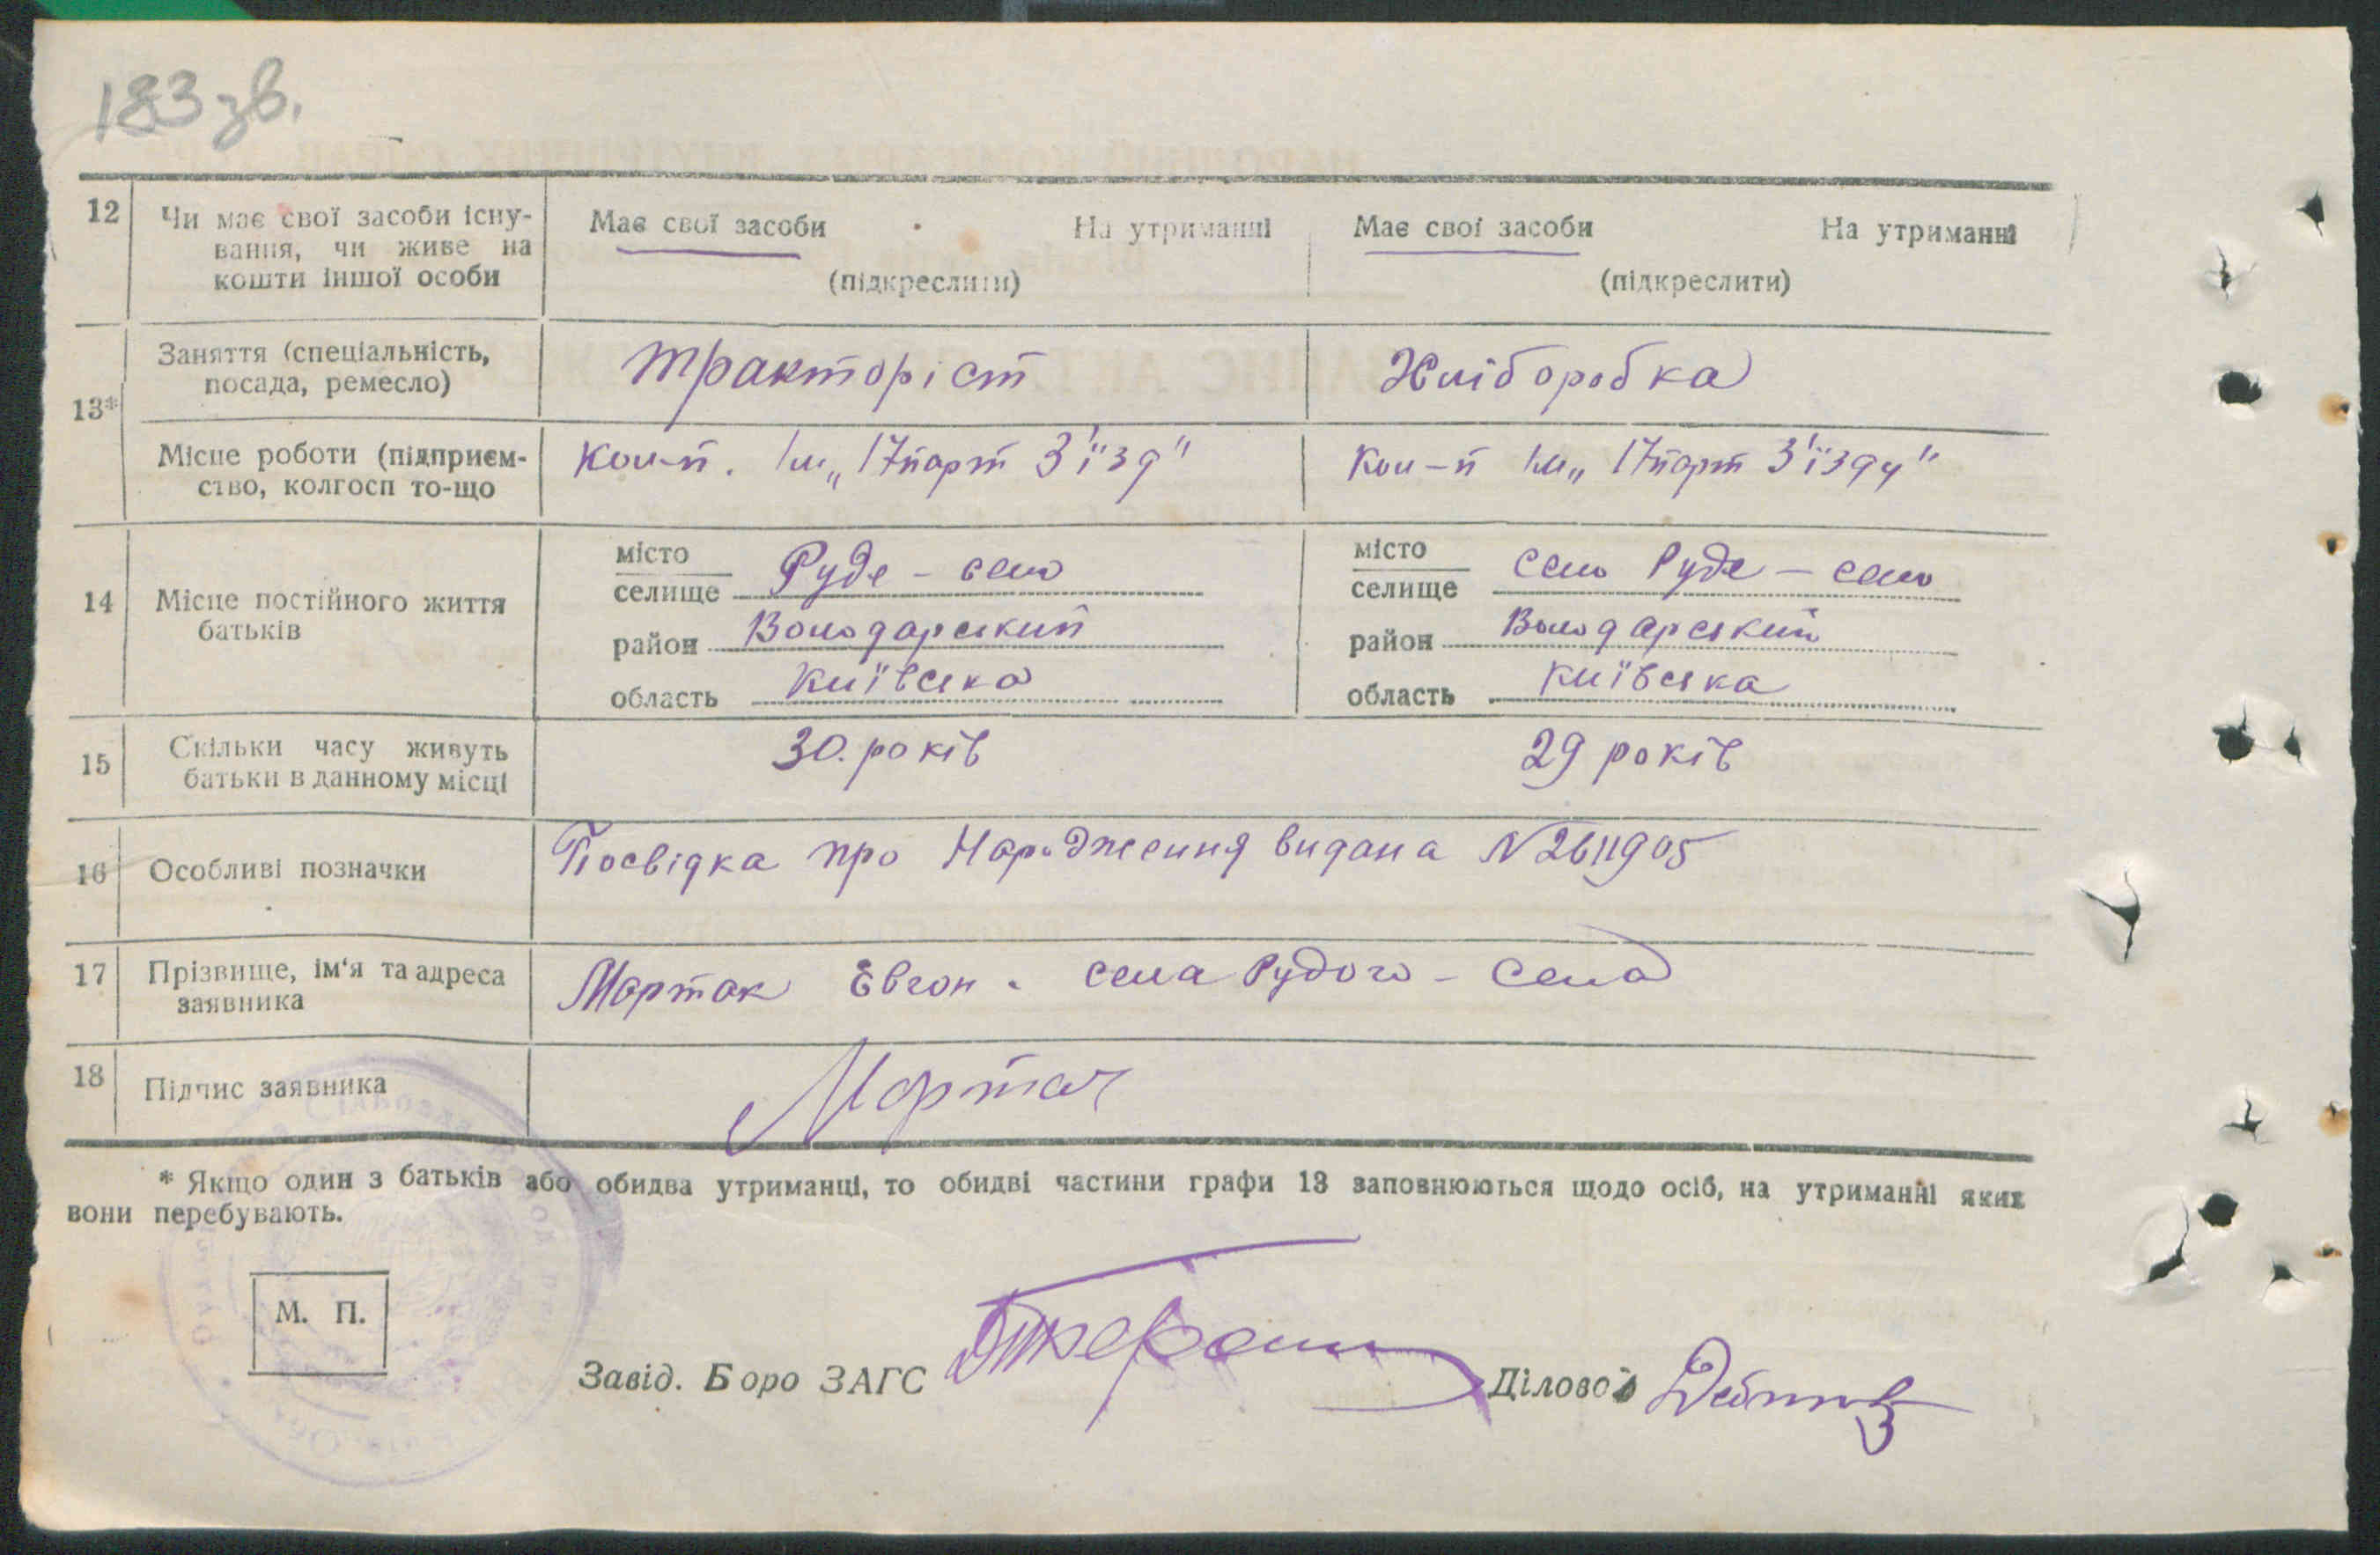 183 зв.
12 Чи має свої засоби існу-
вання, чи живе на
кошти іншої особи
Має свої засоби На утриманні
(підкреслити)
Має свої засоби На утриманні
(підкреслити)
13*
Заняття (спеціальність,
посада, ремесло)
Тракторіст
Хліборобка
Місце роботи (підприєм-
ство, колгосп то-що
Кол-п. Ім „17 парт З'їзд"
Кол-п Ім „17 парт З'їзду"
14 Місце постійного життя
батьків
місто
селище Руде - село
район Володарский
область Київська
місто
селище село Руде - село
район Володарский
область Київська
15 Скільки часу живуть
батьки в данному місці
30. років
29 років
16 Особливі позначки
Посвідка про Народження видана N 2611905
17 Прізвище, ім'я та адреса
заявника
Мартак Євгон. села Рудого - Села
18 Підпис заявника
Мартак
* Якщо один з батьків або обидва утриманці, то обидві частини графи 13 заповнюються щодо осіб, на утриманні яких
вони перебувають.
М. П.
Завід. Боро ЗАГС
Діловод